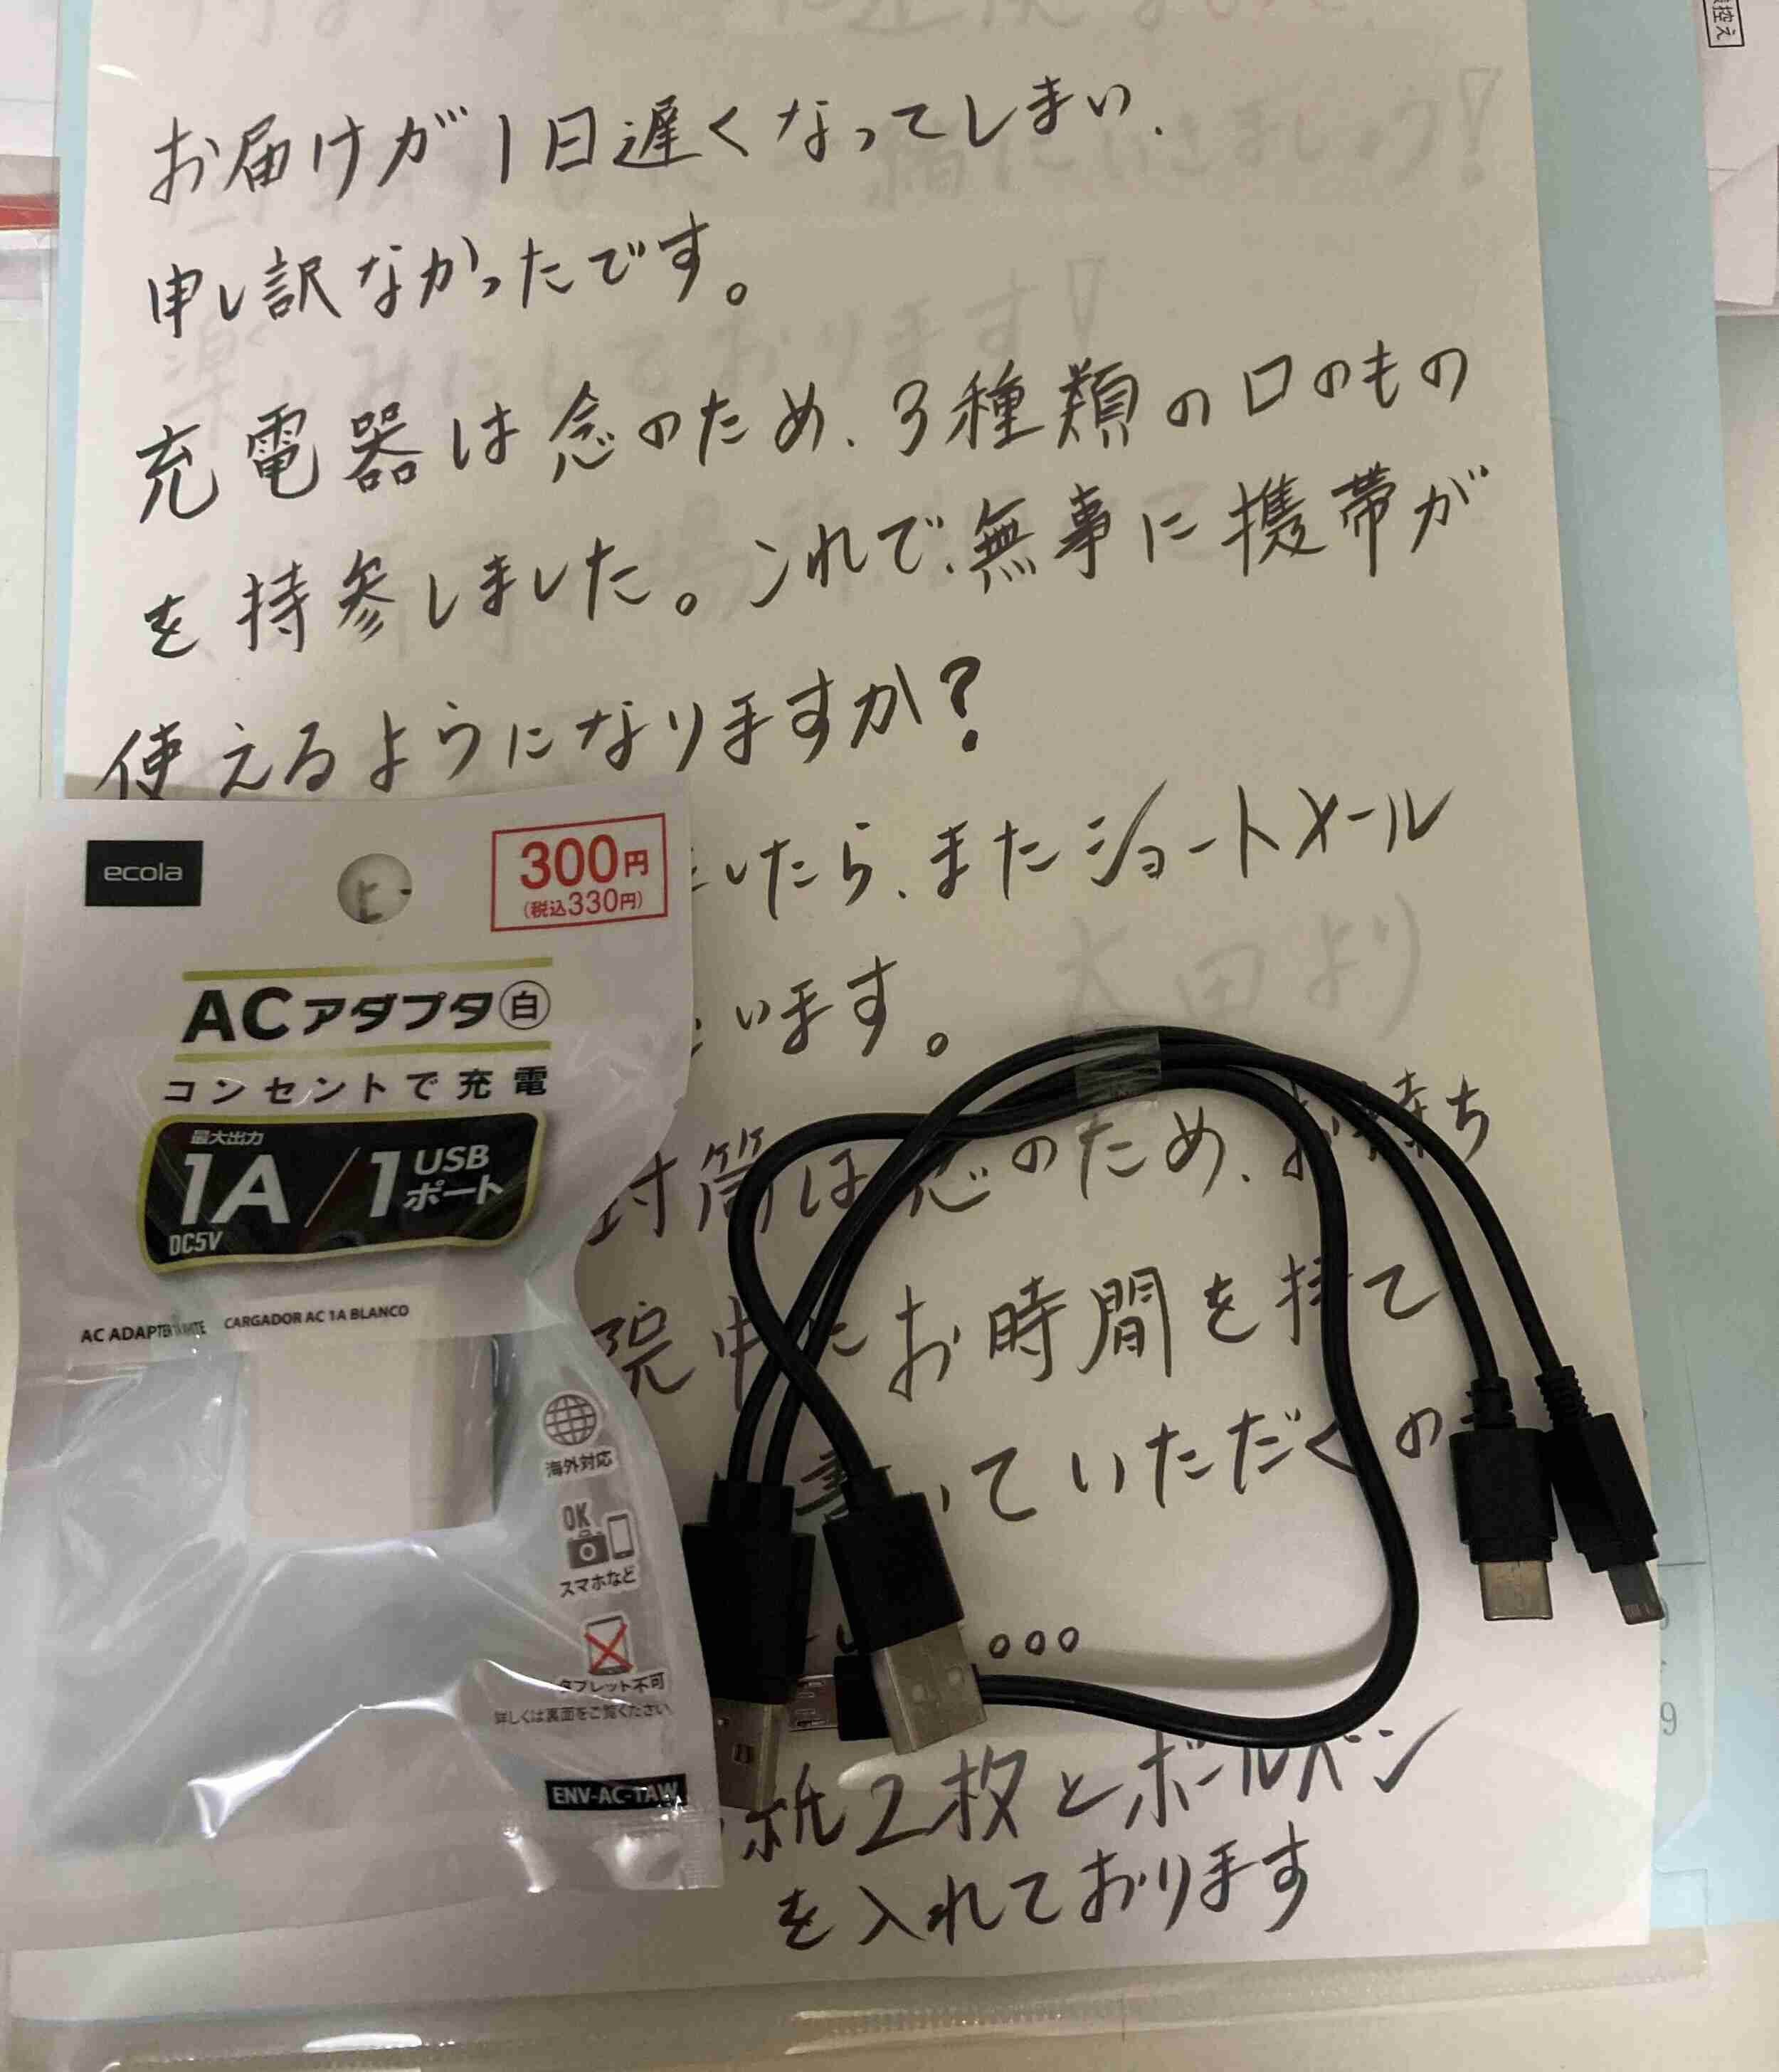 お届けが1日遅くなってしまい、
申し訳なかったです。
充電器は念のため、3種類の口のもの
を持参しました。これで、無事に携帯が
使えるようになりますか?
したら、またショートメール
います。
太田より
封筒は念のため、お持ち
院中にお時間を持て
書いていただくの
...
紙2枚とボールペン
を入れております
ecola
300円
(税込330円)
ACアダプタ白
コンセントで充電
最大出力
1A/1USBポート
DC5V
AC ADAPTER WHITE CARGADOR AC 1A BLANCO
海外対応
OK
スマホなど
タブレット不可
詳しくは裏面をご覧ください
ENV-AC-1AW
控え
楽しみにしております!